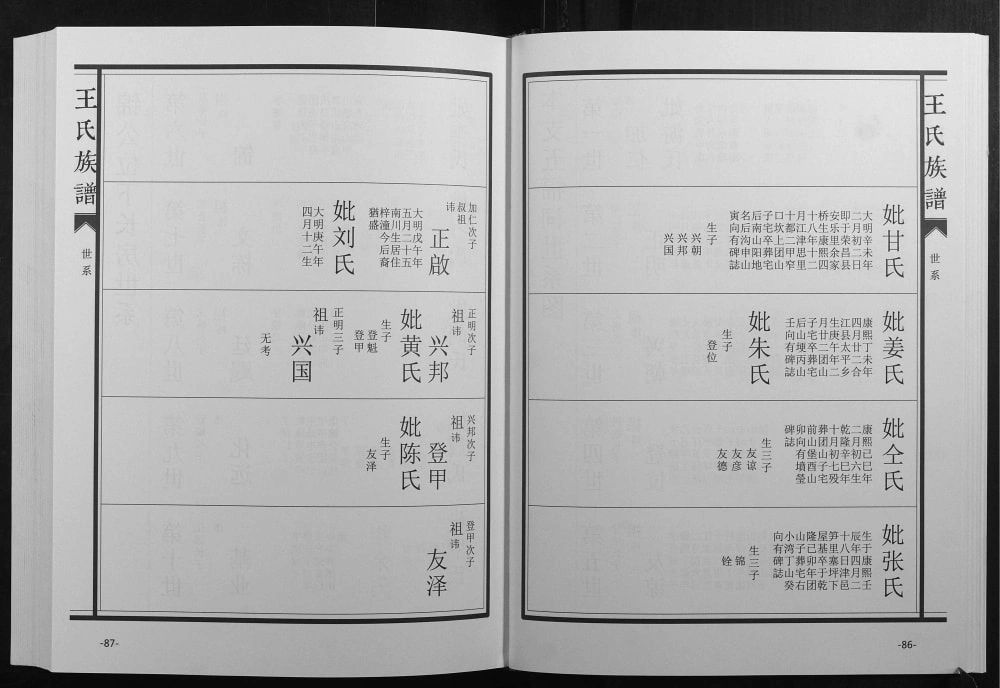 王氏族譜
世系
妣甘氏
大明辛未年
二月初二日
即于荣昌县
安乐里余家
桥生康熙四
十八年十二
月江津思里
十都二甲窄
口坎上团山
子宅卒葬宅
后南山阳地
名后沟申山
寅向有碑誌
生子
兴朝
兴邦
兴国
妣姜氏
康熙丁未年
四月廿二合
江县太平乡
生庚午年二
月廿二团山
子宅卒葬宅
后山埂丙山
壬向有碑誌
妣朱氏
生子
登位
妣仝氏
康熙己巳年
二月初六生
乾隆辛巳年
十月初七殁
葬团山子宅
前山堡酉山
卯向有墳瑩
碑誌
生三子
友谅
友彦
友德
妣张氏
生于康熙壬
辰年四月二
十八日津邑
笋里寨坪下
屋基卒于乾
隆己卯年团
山子葬宅右
小湾丁山癸
向有碑誌
生三子
锦
铨
-86-
加仁次子
叔祖
讳
正啟
大明戊午年
五月二十五
南川生居住
梓潼今后裔
猶盛
妣刘氏
大明庚午年
四月十二生
正明次子
祖讳
兴邦
妣黄氏
生子
登魁
登甲
正明三子
祖讳
兴国
无考
兴邦次子
祖讳
登甲
妣陈氏
生子
友泽
登甲次子
祖讳
友泽
王氏族譜
世系
-87-